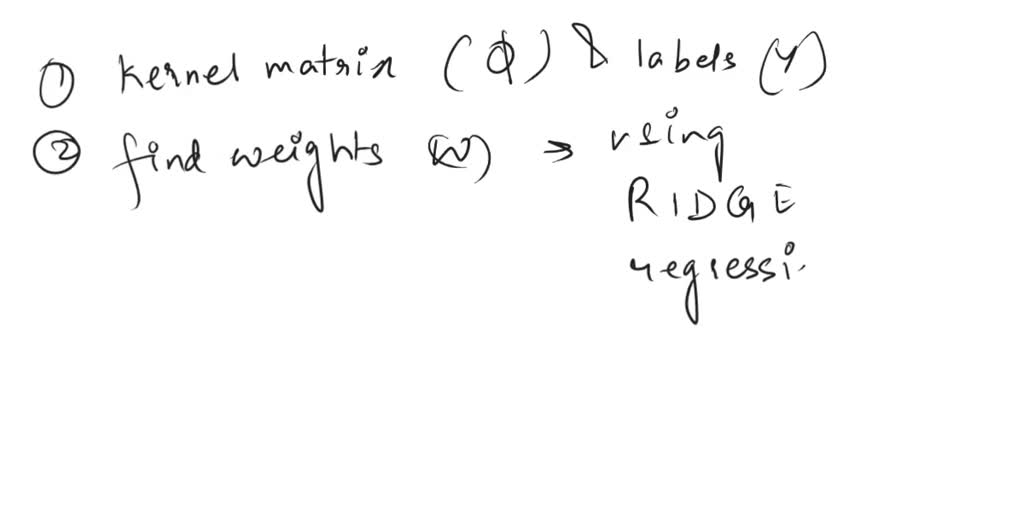 ① kernel matrix (ϕ) & labels (Y)
② find weights (W) → using
RIDGE
regressi